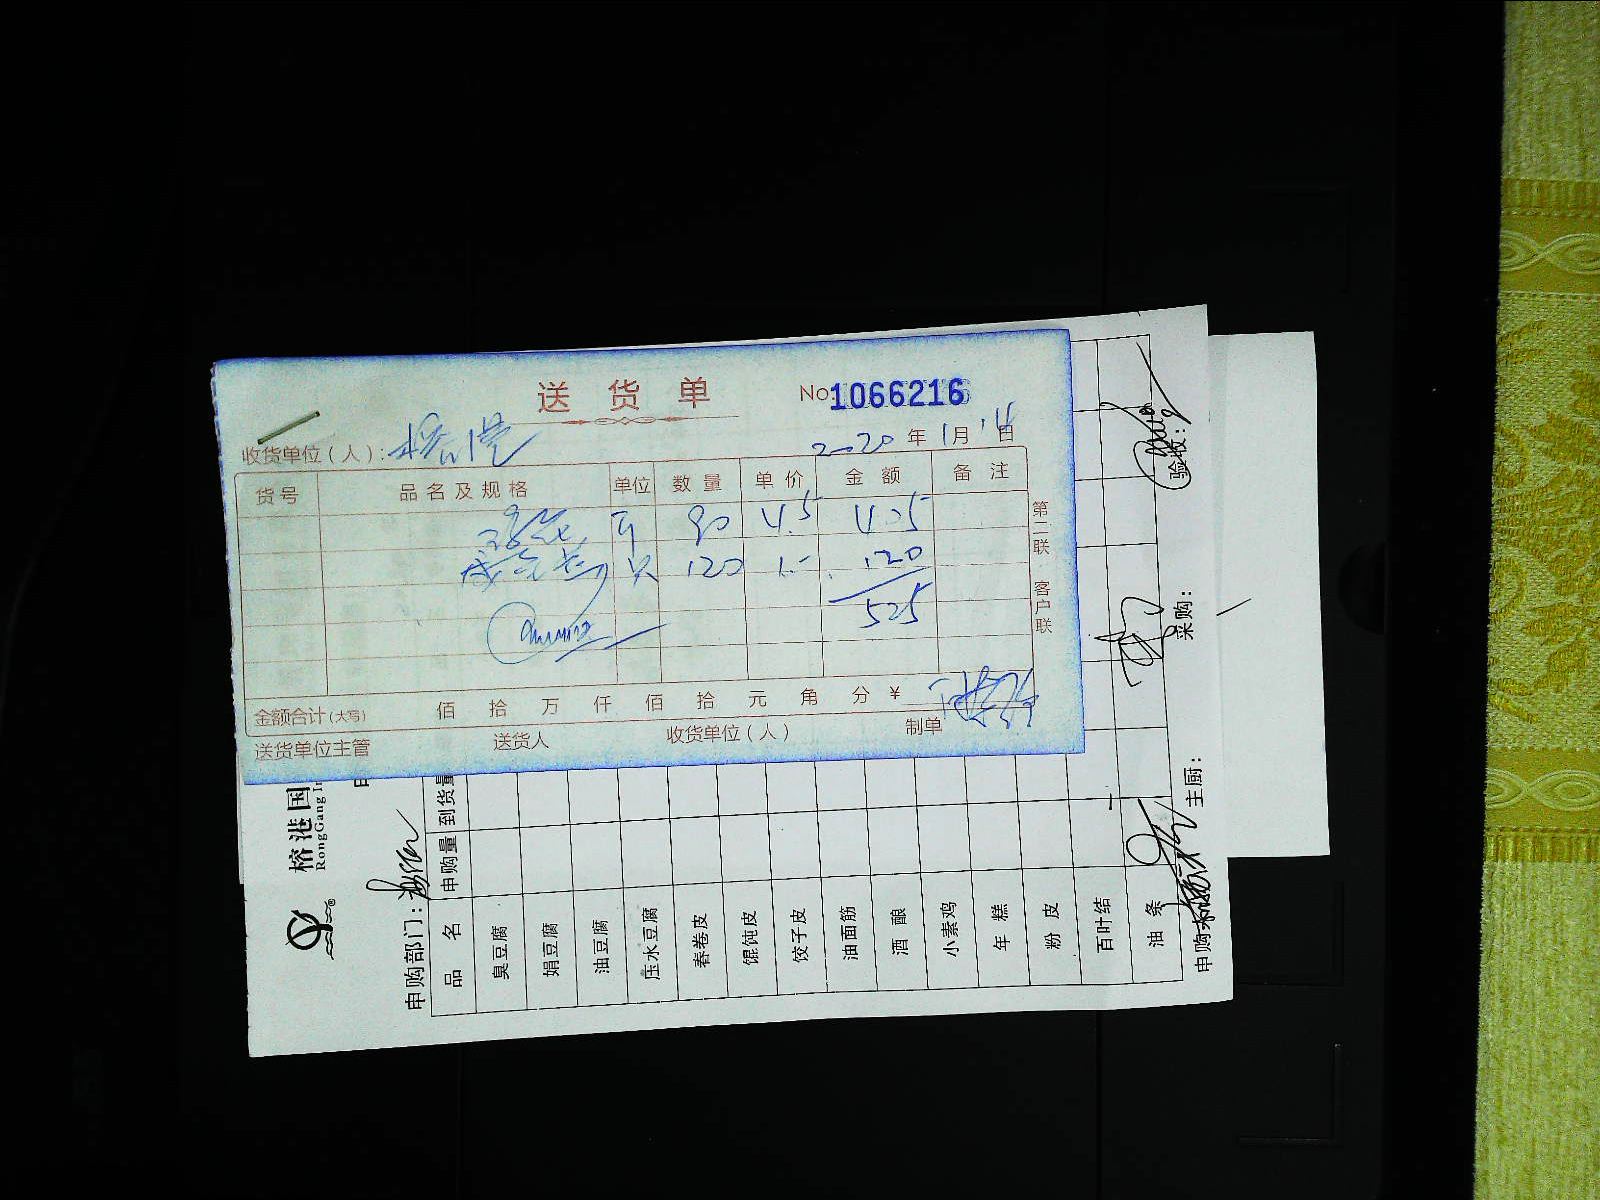 送 货 单
No 1066216
收货单位(人): 榕港
2020 年 1 月 14 日
货号 品名及规格 单位 数量 单价 金额 备注
90 4.5 405
120 1.- 120
525
第二联 客户联
金额合计(大写) 佰 拾 万 仟 佰 拾 元 角 分 ¥
送货单位主管 送货人 收货单位(人) 制单
榕港国
RongGang In
申购部门:
品 名 申购量 到货量
臭豆腐
娟豆腐
油豆腐
压水豆腐
春卷皮
馄饨皮
饺子皮
油面筋
酒 酿
小素鸡
年 糕
粉 皮
百叶结
油 条
申购 主厨: 采购: 验收: